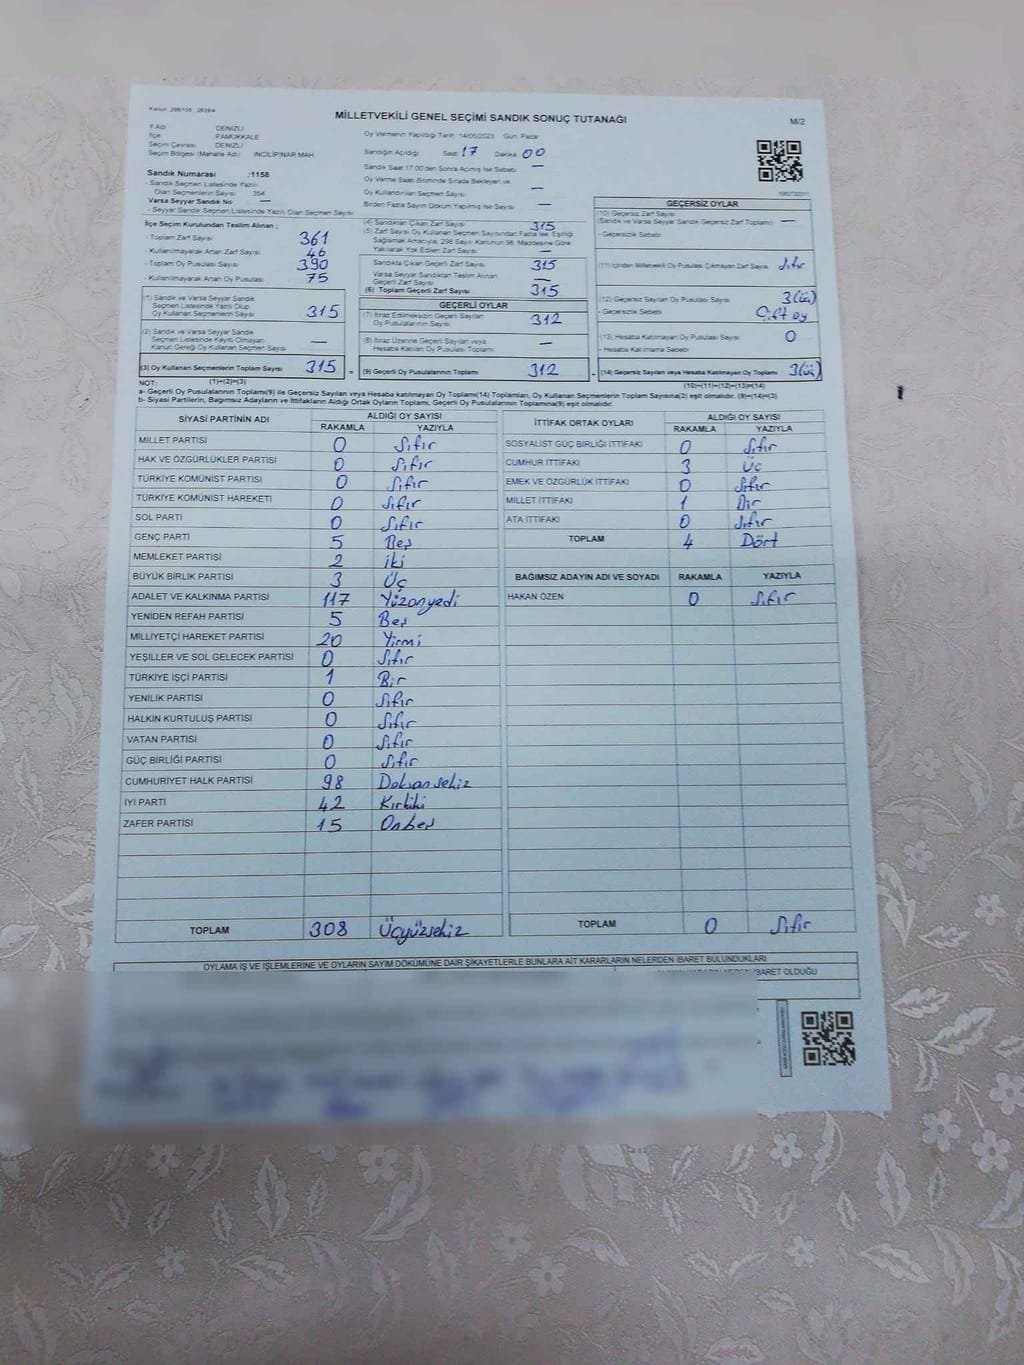 Kanun :298/105 : 2839/4
MİLLETVEKİLİ GENEL SEÇİMİ SANDIK SONUÇ TUTANAĞI
M/2
İl Adı DENİZLİ
İlçe PAMUKKALE
Seçim Çevresi DENİZLİ
Seçim Bölgesi (Mahalle Adı) İNCİLİPINAR MAH.
Sandık Numarası :1158
- Sandık Seçmen Listesinde Yazılı
Olan Seçmenlerin Sayısı 354
Varsa Seyyar Sandık No —
- Seyyar Sandık Seçmen Listesinde Yazılı Olan Seçmen Sayısı
İlçe Seçim Kurulundan Teslim Alınan :
- Toplam Zarf Sayısı 361
- Kullanılmayarak Artan Zarf Sayısı 46
- Toplam Oy Pusulası Sayısı 390
- Kullanılmayarak Artan Oy Pusulası 75
(1) Sandık ve Varsa Seyyar Sandık
Seçmen Listesinde Yazılı Olup
Oy Kullanan Seçmenlerin Sayısı 315
(2) Sandık ve Varsa Seyyar Sandık
Seçmen Listesinde Kayıtlı Olmayan
Kanun Gereği Oy Kullanan Seçmen Sayısı —
(3) Oy Kullanan Seçmenlerin Toplam Sayısı 315 =
(1)+(2)=(3)
Oy Vermenin Yapıldığı Tarih 14/05/2023 Gün Pazar
Sandığın Açıldığı Saat 17 Dakika 00
Sandık Saat 17:00'den Sonra Açılmış İse Sebebi —
Oy Verme Saati Bitiminde Sırada Bekleyen ve
Oy Kullandırılan Seçmen Sayısı —
Birden Fazla Sayım Döküm Yapılmış İse Sayısı —
(4) Sandıktan Çıkan Zarf Sayısı 315
(5) Zarf Sayısı Oy Kullanan Seçmen Sayısından Fazla İse, Eşitliği
Sağlamak Amacıyla, 298 Sayılı Kanunun 98. Maddesine Göre
Yakılarak Yok Edilen Zarf Sayısı —
Sandıkta Çıkan Geçerli Zarf Sayısı 315
Varsa Seyyar Sandıktan Teslim Alınan
Geçerli Zarf Sayısı —
(6) Toplam Geçerli Zarf Sayısı 315
GEÇERLİ OYLAR
(7) İtiraz Edilmeksizin Geçerli Sayılan
Oy Pusulalarının Sayısı 312
(8) İtiraz Üzerine Geçerli Sayılan veya
Hesaba Katılan Oy Pusulası Toplamı —
(9) Geçerli Oy Pusulalarının Toplamı 312
GEÇERSİZ OYLAR
(10) Geçersiz Zarf Sayısı
(Sandık ve Varsa Seyyar Sandık Geçersiz Zarf Toplamı) —
- Geçersizlik Sebebi
(11) İçinden Milletvekili Oy Pusulası Çıkmayan Zarf Sayısı Sıfır
(12) Geçersiz Sayılan Oy Pusulası Sayısı 3(üç)
- Geçersizlik Sebebi Çift oy
(13) Hesaba Katılmayan Oy Pusulası Sayısı 0
- Hesaba Katılmama Sebebi
(14) Geçersiz Sayılan veya Hesaba Katılmayan Oy Toplamı 3(üç)
(10)+(11)+(12)+(13)=(14)
NOT:
a- Geçerli Oy Pusulalarının Toplamı(9) ile Geçersiz Sayılan veya Hesaba katılmayan Oy Toplamı(14) Toplamları, Oy Kullanan Seçmenlerin Toplam Sayısına(3) eşit olmalıdır. (9)+(14)=(3)
b- Siyasi Partilerin, Bağımsız Adayların ve İttifakların Aldığı Ortak Oyların Toplamı, Geçerli Oy Pusulalarının Toplamına(9) eşit olmalıdır.
SİYASİ PARTİNİN ADI ALDIĞI OY SAYISI
RAKAMLA YAZIYLA
MİLLET PARTİSİ 0 Sıfır
HAK VE ÖZGÜRLÜKLER PARTİSİ 0 Sıfır
TÜRKİYE KOMÜNİST PARTİSİ 0 Sıfır
TÜRKİYE KOMÜNİST HAREKETİ 0 Sıfır
SOL PARTİ 0 Sıfır
GENÇ PARTİ 5 Beş
MEMLEKET PARTİSİ 2 iki
BÜYÜK BİRLİK PARTİSİ 3 Üç
ADALET VE KALKINMA PARTİSİ 117 Yüzonyedi
YENİDEN REFAH PARTİSİ 5 Beş
MİLLİYETÇİ HAREKET PARTİSİ 20 Yirmi
YEŞİLLER VE SOL GELECEK PARTİSİ 0 Sıfır
TÜRKİYE İŞÇİ PARTİSİ 1 Bir
YENİLİK PARTİSİ 0 Sıfır
HALKIN KURTULUŞ PARTİSİ 0 Sıfır
VATAN PARTİSİ 0 Sıfır
GÜÇ BİRLİĞİ PARTİSİ 0 Sıfır
CUMHURİYET HALK PARTİSİ 98 Doksansekiz
İYİ PARTİ 42 Kırkiki
ZAFER PARTİSİ 15 Onbeş
TOPLAM 308 Üçyüzsekiz
İTTİFAK ORTAK OYLARI ALDIĞI OY SAYISI
RAKAMLA YAZIYLA
SOSYALİST GÜÇ BİRLİĞİ İTTİFAKI 0 Sıfır
CUMHUR İTTİFAKI 3 Üç
EMEK VE ÖZGÜRLÜK İTTİFAKI 0 Sıfır
MİLLET İTTİFAKI 1 Bir
ATA İTTİFAKI 0 Sıfır
TOPLAM 4 Dört
BAĞIMSIZ ADAYIN ADI VE SOYADI RAKAMLA YAZIYLA
HAKAN ÖZEN 0 Sıfır
TOPLAM 0 Sıfır
OYLAMA İŞ VE İŞLEMLERİNE VE OYLARIN SAYIM DÖKÜMÜNE DAİR ŞİKAYETLERLE BUNLARA AİT KARARLARIN NELERDEN İBARET BULUNDUKLARI
İBARET OLDUĞU